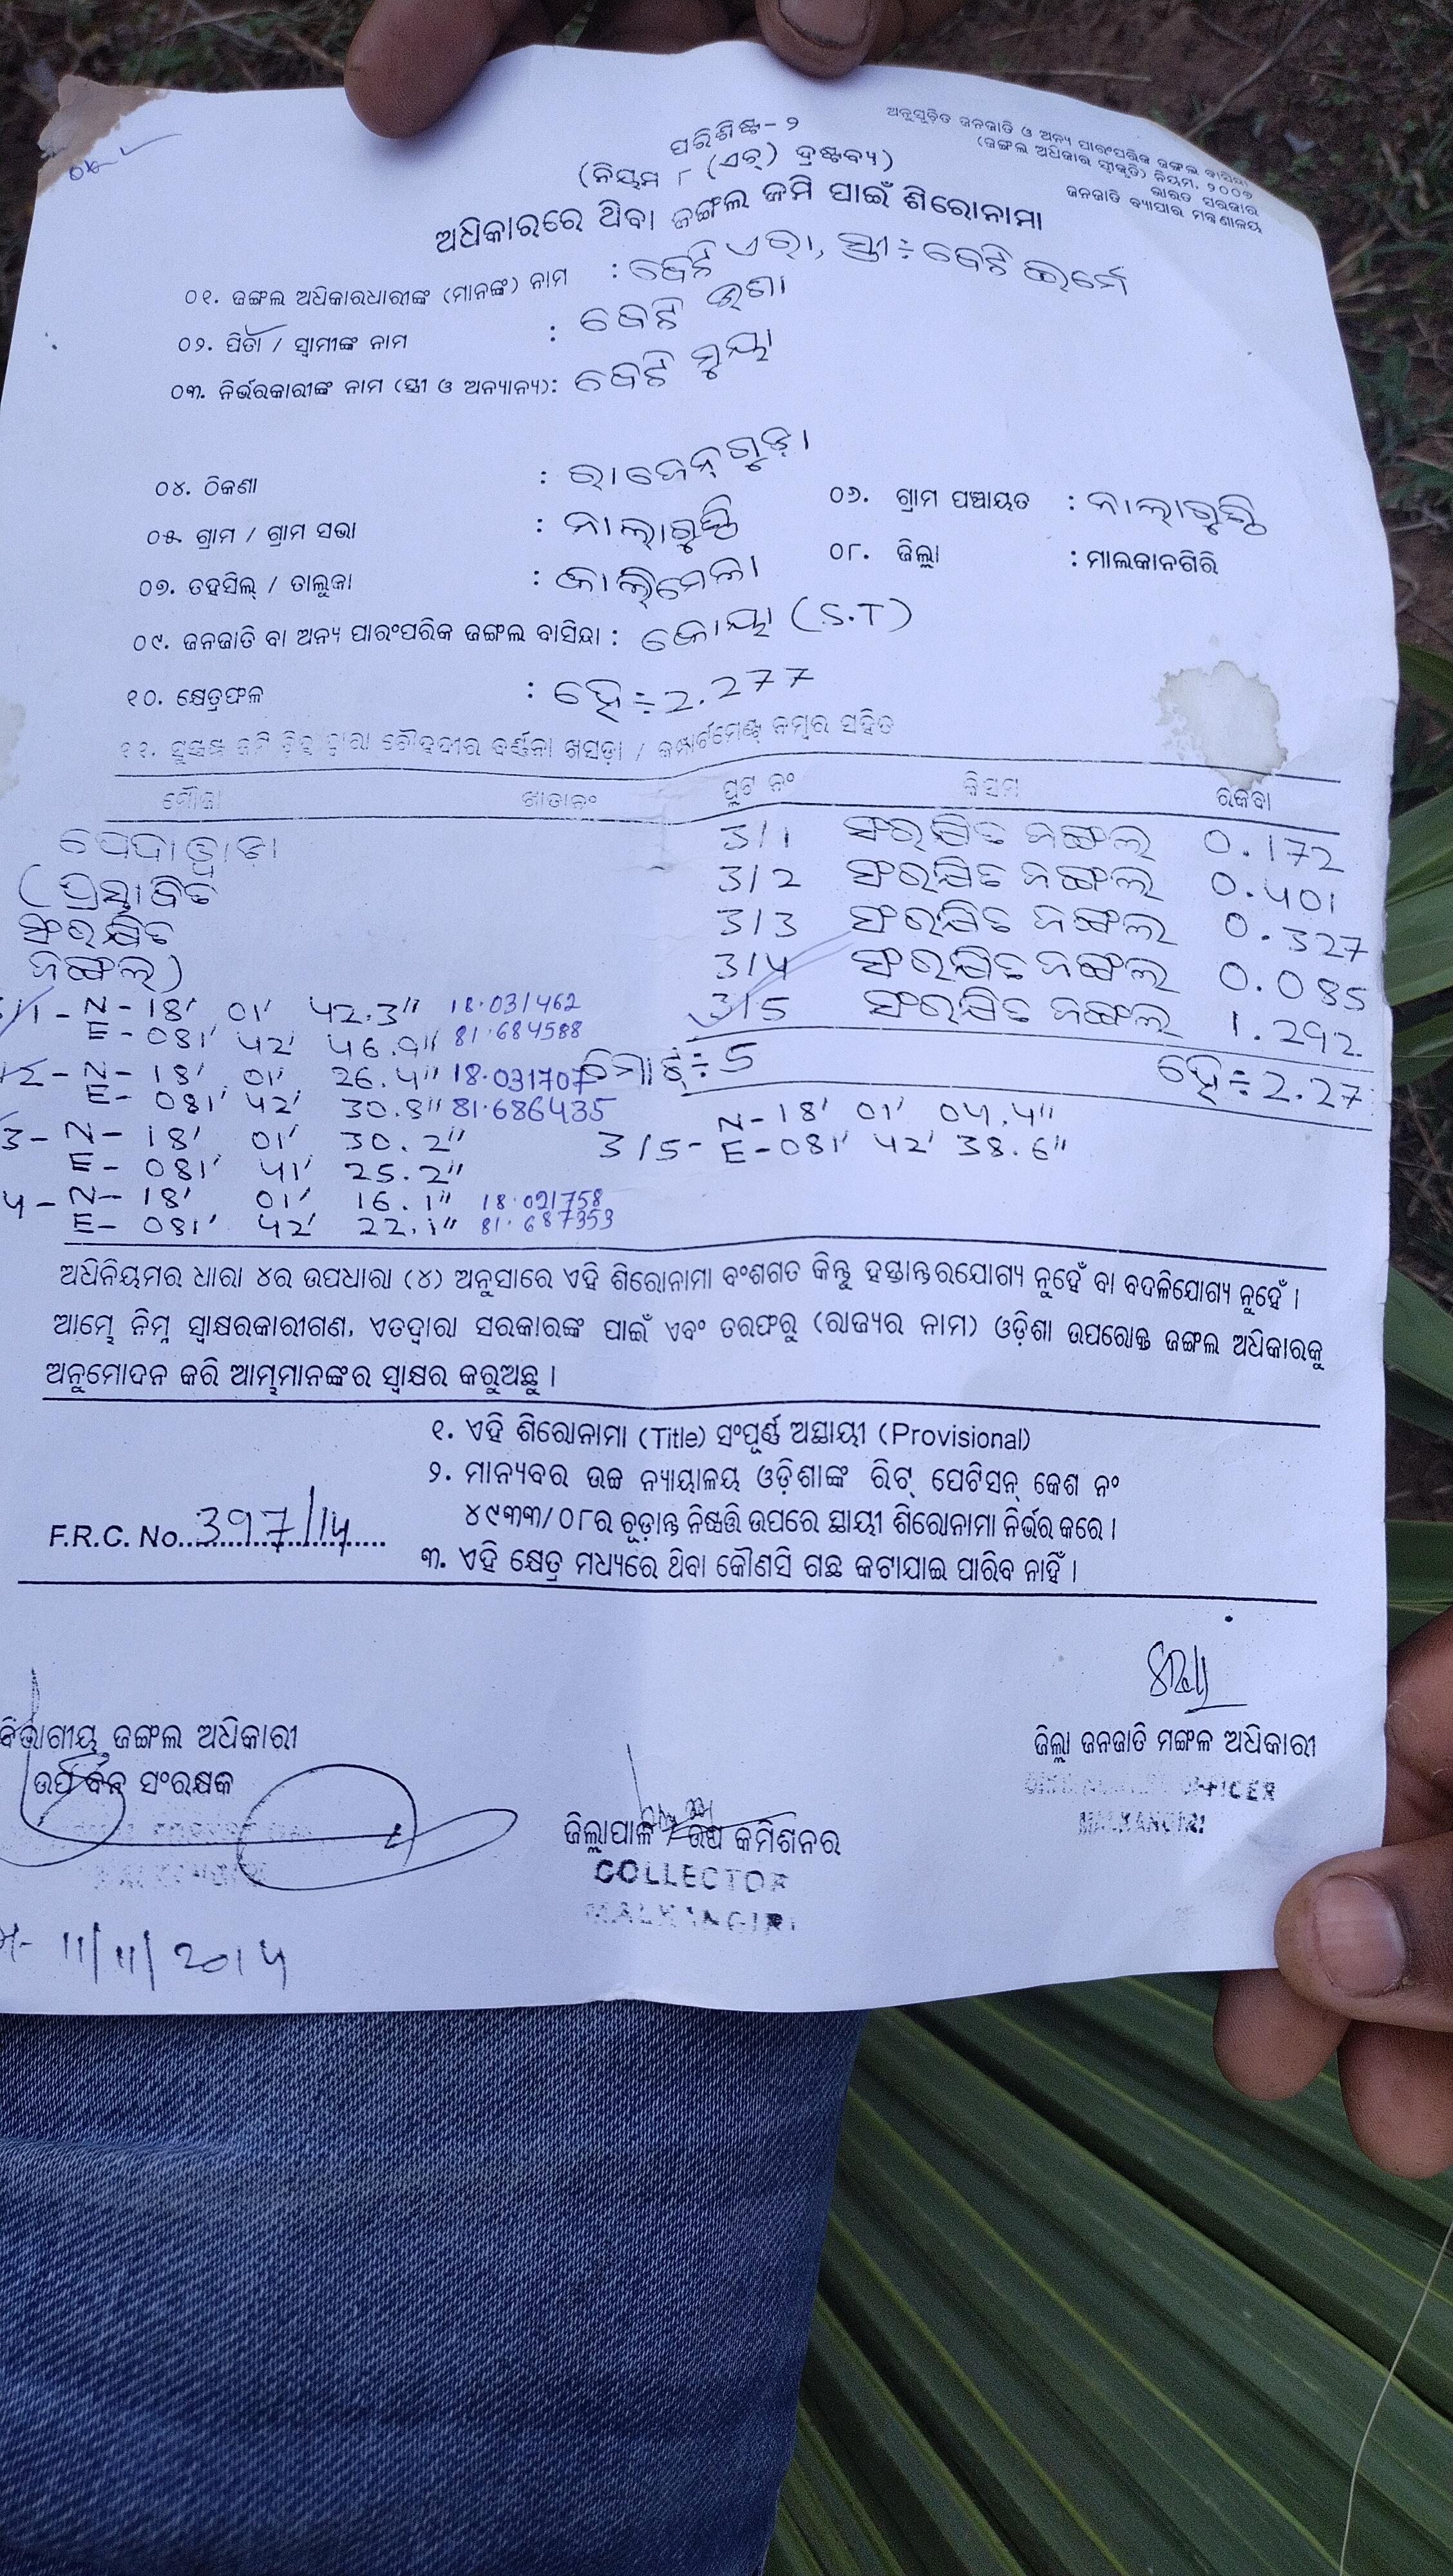 ଅନୁସୂଚିତ ଜନଜାତି ଓ ଅନ୍ୟ ପାରଂପରିକ ଜଙ୍ଗଲ ବାସିନ୍ଦା
(ଜଙ୍ଗଲ ଅଧିକାର ସ୍ୱୀକୃତି) ନିୟମ, ୨୦୦୭
ଭାରତ ସରକାର
ଜନଜାତି ବ୍ୟାପାର ମନ୍ତ୍ରଣାଳୟ
ପରିଶିଷ୍ଟ-୨
(ନିୟମ ୮ (ଏଚ୍) ଦ୍ରଷ୍ଟବ୍ୟ)
ଅଧିକାରରେ ଥିବା ଜଙ୍ଗଲ ଜମି ପାଇଁ ଶିରୋନାମା
୦୧. ଜଙ୍ଗଲ ଅଧିକାରଧାରୀଙ୍କ (ମାନଙ୍କ) ନାମ : ବେଟି ଏରା, ସ୍ତ୍ରୀ÷ ବେଟି ଇର୍ମେ
୦୨. ପିତା / ସ୍ୱାମୀଙ୍କ ନାମ : ବେଟି
୦୩. ନିର୍ଭରକାରୀଙ୍କ ନାମ (ସ୍ତ୍ରୀ ଓ ଅନ୍ୟାନ୍ୟ): ବେଟି ମୁୟା
୦୪. ଠିକଣା : ରାଜେନ୍ଗୁଡ଼ା
୦୫. ଗ୍ରାମ / ଗ୍ରାମ ସଭା : ନାଲାଗୁଣ୍ଠି ୦୬. ଗ୍ରାମ ପଞ୍ଚାୟତ : ନାଲାଗୁଣ୍ଠି
୦୭. ତହସିଲ୍ / ତାଲୁକା : କାଲିମେଳା ୦୮. ଜିଲ୍ଲା : ମାଲକାନଗିରି
୦୯. ଜନଜାତି ବା ଅନ୍ୟ ପାରଂପରିକ ଜଙ୍ଗଲ ବାସିନ୍ଦା : କୋୟା (S.T)
୧୦. କ୍ଷେତ୍ରଫଳ : ହେ÷2.277
୧୧. ସୁସ୍ପଷ୍ଟ ଜମି ଚିହ୍ନ ଦ୍ୱାରା ଚୌହଦୀର ବର୍ଣ୍ଣନା ଖସଡ଼ା / କମ୍ପାର୍ଟମେଣ୍ଟ ନମ୍ବର ସହିତ
ମୌଜା ଖାତାନଂ ପ୍ଲଟ ନଂ କିସମ ରକବା
3/1 ସଂରକ୍ଷିତ ଜଙ୍ଗଲ 0.172
(ପ୍ରସ୍ତାବିତ 3/2 ସଂରକ୍ଷିତ ଜଙ୍ଗଲ 0.401
ସଂରକ୍ଷିତ 3/3 ସଂରକ୍ଷିତ ଜଙ୍ଗଲ 0.327
ଜଙ୍ଗଲ) 3/4 ସଂରକ୍ଷିତ ଜଙ୍ଗଲ 0.085
3/5 ସଂରକ୍ଷିତ ଜଙ୍ଗଲ 1.292
/1 - N - 18' 01' 42.3" 18.031462
E - 081' 42' 46.9" 81.684588
ମୋଟ÷5 ହେ÷2.27
/2 - N - 18' 01' 26.4" 18.031707
E - 081' 42' 30.8" 81.686435
3 - N - 18' 01' 30.2"
E - 081' 41' 25.2"
4 - N - 18' 01' 16.1" 18.021758
E - 081' 42' 22.1" 81.687353
N - 18' 01' 04.4"
3/5 - E - 081' 42' 38.6"
ଅଧିନିୟମର ଧାରା ୪ର ଉପଧାରା (୪) ଅନୁସାରେ ଏହି ଶିରୋନାମା ବଂଶଗତ କିନ୍ତୁ ହସ୍ତାନ୍ତରଯୋଗ୍ୟ ନୁହେଁ ବା ବଦଳିଯୋଗ୍ୟ ନୁହେଁ ।
ଆମ୍ଭେ ନିମ୍ନ ସ୍ୱାକ୍ଷରକାରୀଗଣ, ଏତଦ୍ୱାରା ସରକାରଙ୍କ ପାଇଁ ଏବଂ ତରଫରୁ (ରାଜ୍ୟର ନାମ) ଓଡ଼ିଶା ଉପରୋକ୍ତ ଜଙ୍ଗଲ ଅଧିକାରକୁ
ଅନୁମୋଦନ କରି ଆମ୍ଭମାନଙ୍କର ସ୍ୱାକ୍ଷର କରୁଅଛୁ ।
୧. ଏହି ଶିରୋନାମା (Title) ସଂପୂର୍ଣ୍ଣ ଅସ୍ଥାୟୀ (Provisional)
୨. ମାନ୍ୟବର ଉଚ୍ଚ ନ୍ୟାୟାଳୟ ଓଡ଼ିଶାଙ୍କ ରିଟ୍ ପେଟିସନ୍ କେଶ ନଂ
୪୯୩୩/୦୮ର ଚୂଡ଼ାନ୍ତ ନିଷ୍ପତ୍ତି ଉପରେ ସ୍ଥାୟୀ ଶିରୋନାମା ନିର୍ଭର କରେ ।
F.R.C. No. 397/14
୩. ଏହି କ୍ଷେତ୍ର ମଧ୍ୟରେ ଥିବା କୌଣସି ଗଛ କଟାଯାଇ ପାରିବ ନାହିଁ ।
ବିଭାଗୀୟ ଜଙ୍ଗଲ ଅଧିକାରୀ
ଉପ ବନ ସଂରକ୍ଷକ
ଜିଲ୍ଲାପାଳ / ଉପ କମିଶନର
COLLECTOR
MALKANGIRI
ଜିଲ୍ଲା ଜନଜାତି ମଙ୍ଗଳ ଅଧିକାରୀ
OFFICER
MALKANGIRI
11/11/2014